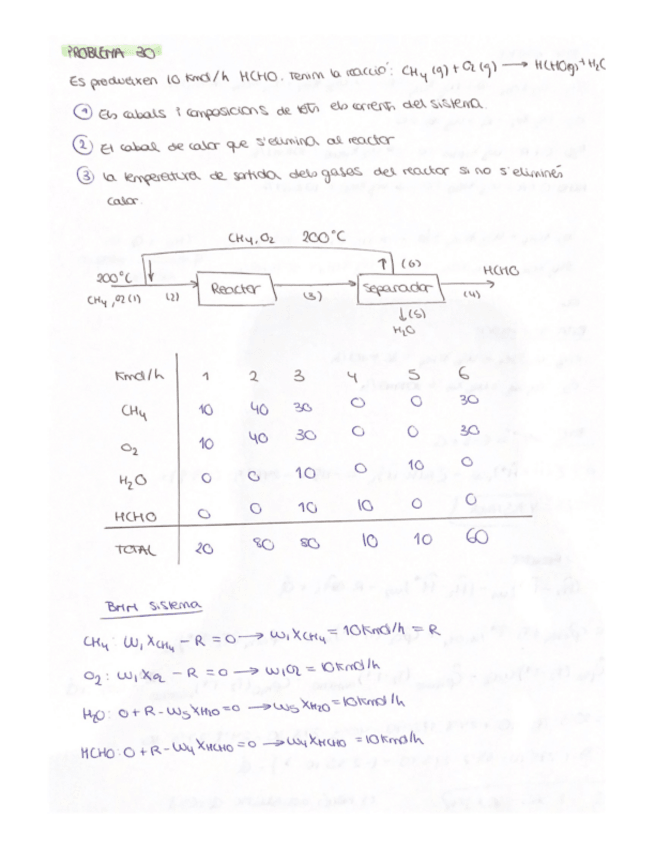 PROBLEMA 30
Es produeixen 10 Kmol/h HCHO. Tenim la reacció: CH4 (g) + O2 (g) → HCHO(g) + H2O
① Els cabals i composicions de tots els corrents del sistema.
② El cabal de calor que s'elimina al reactor
③ La temperatura de sortida dels gasos del reactor si no s'eliminés
calor.
CH4, O2 200°C
200°C
CH4, O2 (1)
(2)
Reactor
(3)
Separador
(6)
HCHO
(4)
(5)
H2O
Kmol/h 1 2 3 4 5 6
CH4 10 40 30 0 0 30
O2 10 40 30 0 0 30
H2O 0 0 10 0 10 0
HCHO 0 0 10 10 0 0
TOTAL 20 80 80 10 10 60
BMM Sistema
CH4: W1 XCH4 - R = 0 → W1 XCH4 = 10 Kmol/h = R
O2: W1 XO2 - R = 0 → W1O2 = 10 Kmol/h
H2O: 0 + R - W5 XH2O = 0 → W5 XH2O = 10 Kmol/h
HCHO: 0 + R - W4 XHCHO = 0 → W4 XHCHO = 10 Kmol/h